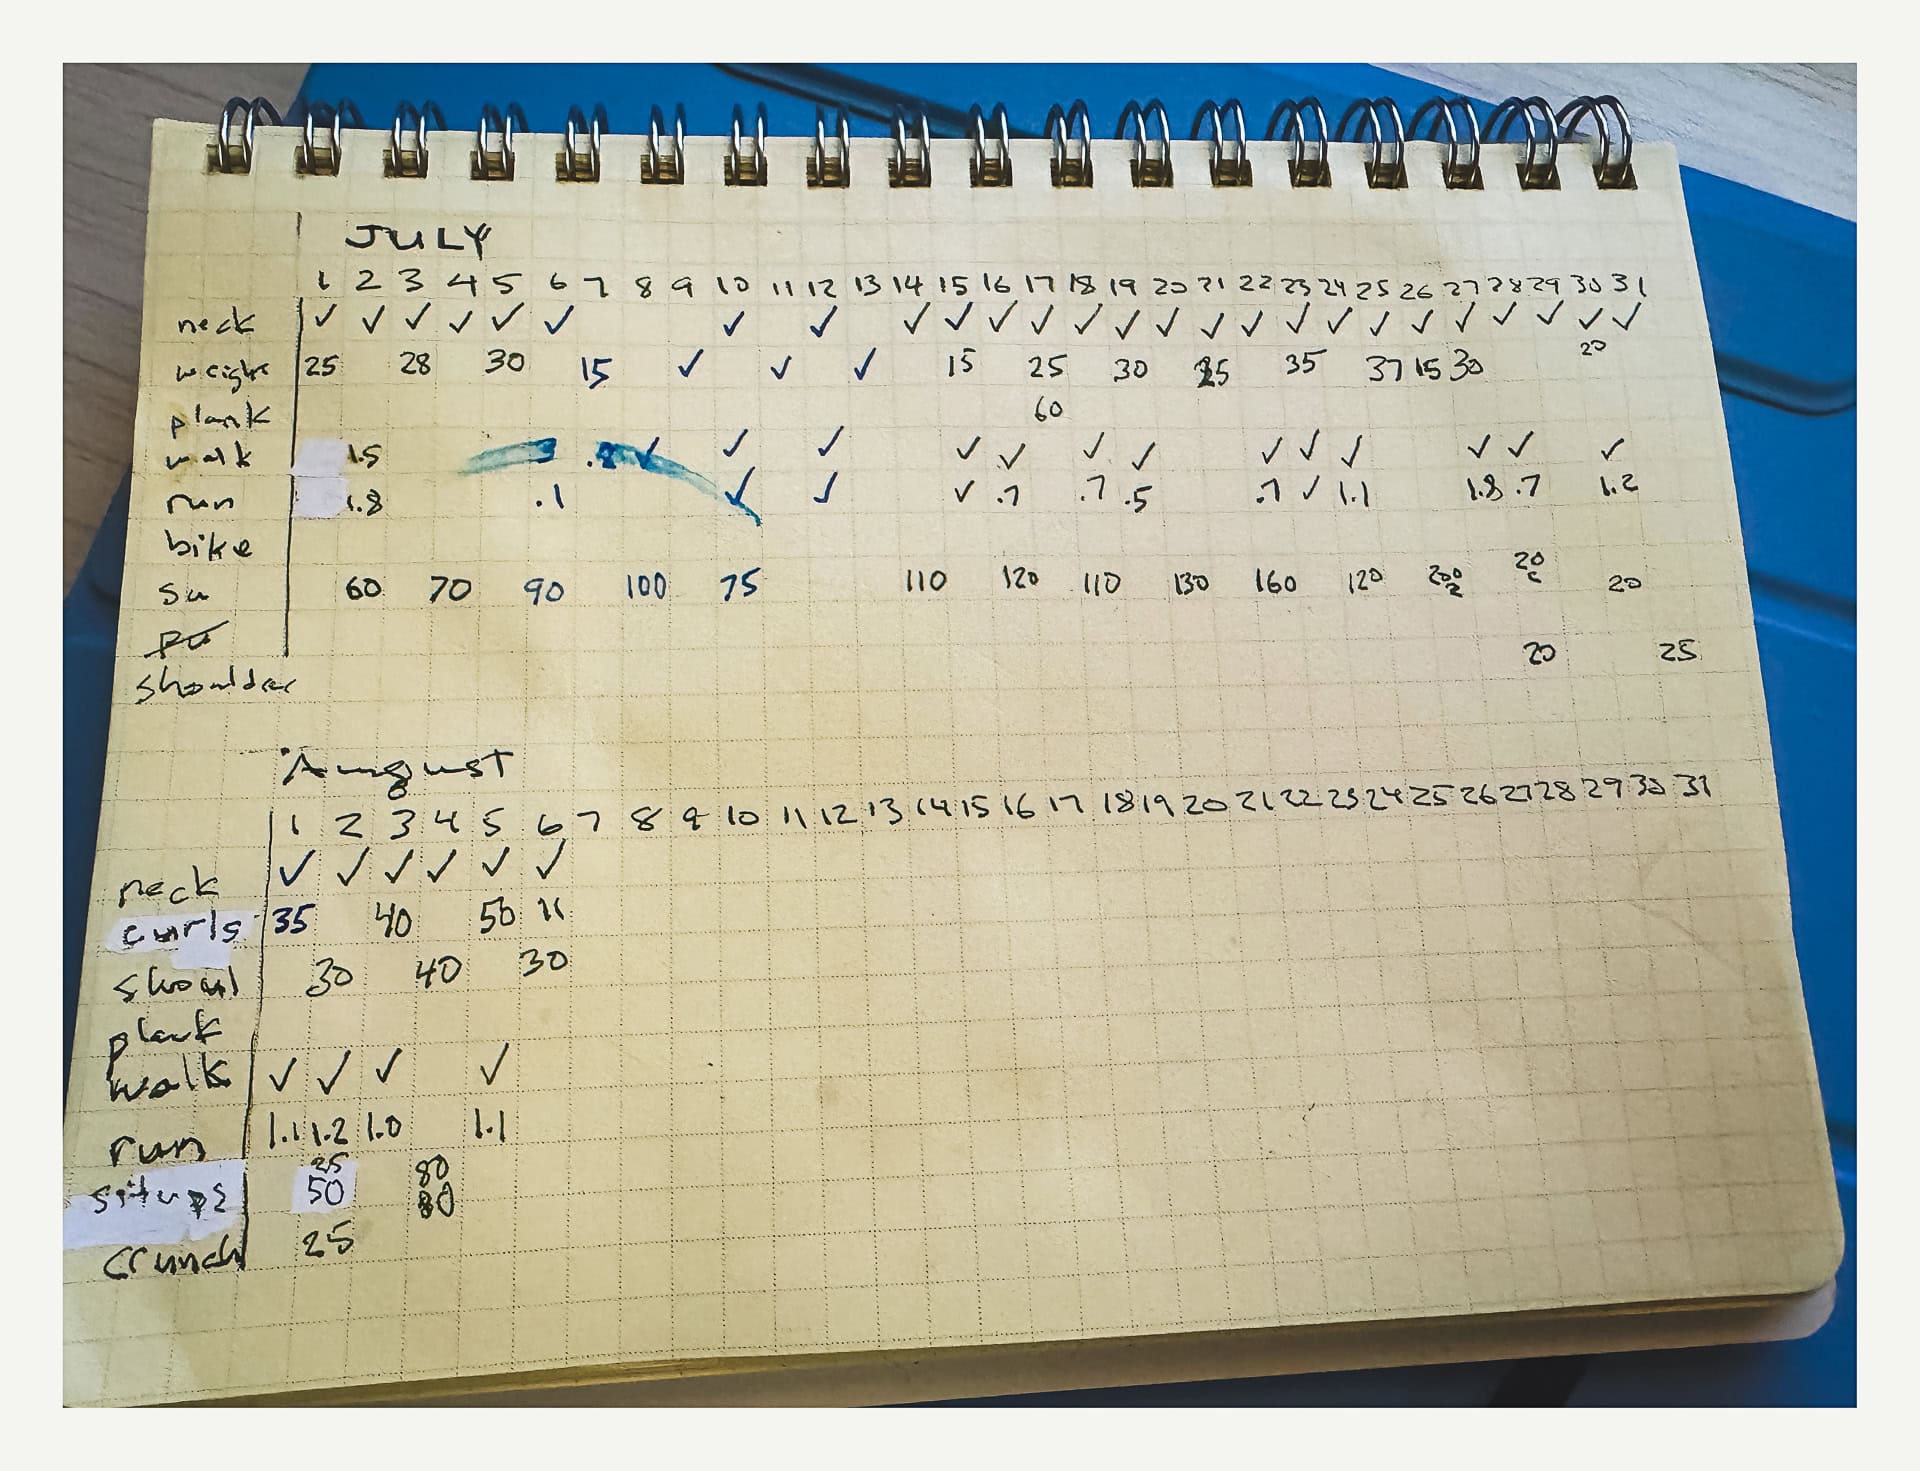 JULY
1 2 3 4 5 6 7 8 9 10 11 12 13 14 15 16 17 18 19 20 21 22 23 24 25 26 27 28 29 30 31
neck ✓ ✓ ✓ ✓ ✓ ✓ ✓ ✓ ✓ ✓ ✓ ✓ ✓ ✓ ✓ ✓ ✓ ✓ ✓ ✓ ✓ ✓ ✓ ✓ ✓ ✓
weight 25 28 30 15 ✓ ✓ ✓ 15 25 30 35 37 15 30 20
plank 60
walk 1.5 ✓ ✓ ✓ ✓ ✓ ✓ ✓ ✓ ✓ ✓ ✓ ✓ ✓
run 1.8 .1 ✓ ✓ ✓ .7 .7 .5 .7 ✓ 1.1 1.8 .7 1.2
bike
su 60 70 90 100 75 110 120 110 130 160 120 20 20
pu 20 25
shoulder
August
1 2 3 4 5 6 7 8 9 10 11 12 13 14 15 16 17 18 19 20 21 22 23 24 25 26 27 28 29 30 31
neck ✓ ✓ ✓ ✓ ✓ ✓
curls 35 40 50
shoul 30 40 30
plank
walk ✓ ✓ ✓ ✓
run 1.1 1.2 1.0 1.1
25 80
situps 50 80
crunch 25